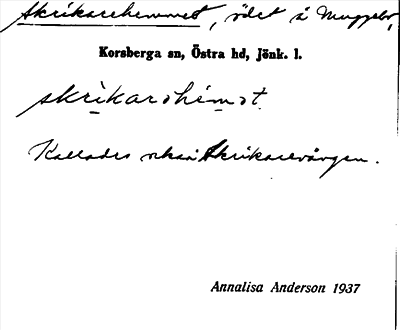 Skrikarehemmet, ödet å Muggebo,
Korsberga sn, Östra hd, Jönk. l.
skrikarəhemət
Kallades också Skrikarevången.
Annalisa Anderson 1937